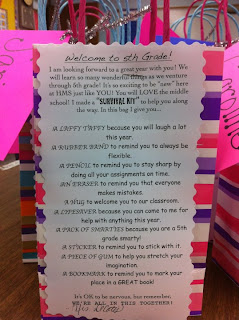 Welcome to 5th Grade!
I am looking forward to a great year with you! We
will learn so many wonderful things as we venture
through 5th grade! It's so exciting to be "new" here
at HSMS just like YOU! You will LOVE the middle
school! I made a "SURVIVAL KIT" to help you along
the way. In this bag I give you...
A LAFFY TAFFY because you will laugh a lot
this year.
A RUBBER BAND to remind you to always be
flexible.
A PENCIL to remind you to stay sharp by
doing all your assignments on time.
AN ERASER to remind you that everyone
makes mistakes.
A HUG to welcome you to our classroom.
A LIFESAVER because you can come to me for
help with anything this year.
A PACK OF SMARTIES because you are a 5th
grade smarty!
A STICKER to remind you to stick with it.
A PIECE OF GUM to help you stretch your
imagination.
A BOOKMARK to remind you to mark your
place in a GREAT book!
It's OK to be nervous, but remember,
WE'RE ALL IN THIS TOGETHER!